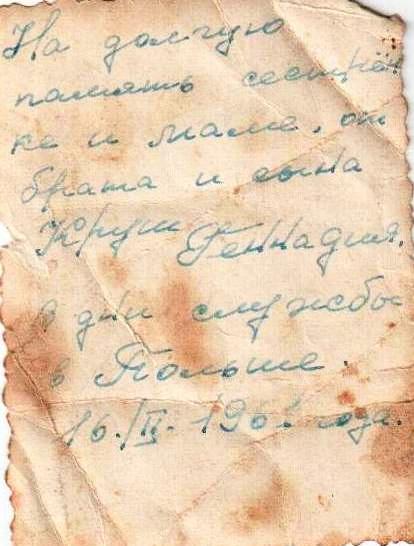 На долгую
память сестрён
ке и маме, от
брата и сына
Круш Геннадия.
в дни службы
в Польше.
16/II. 1961 года.